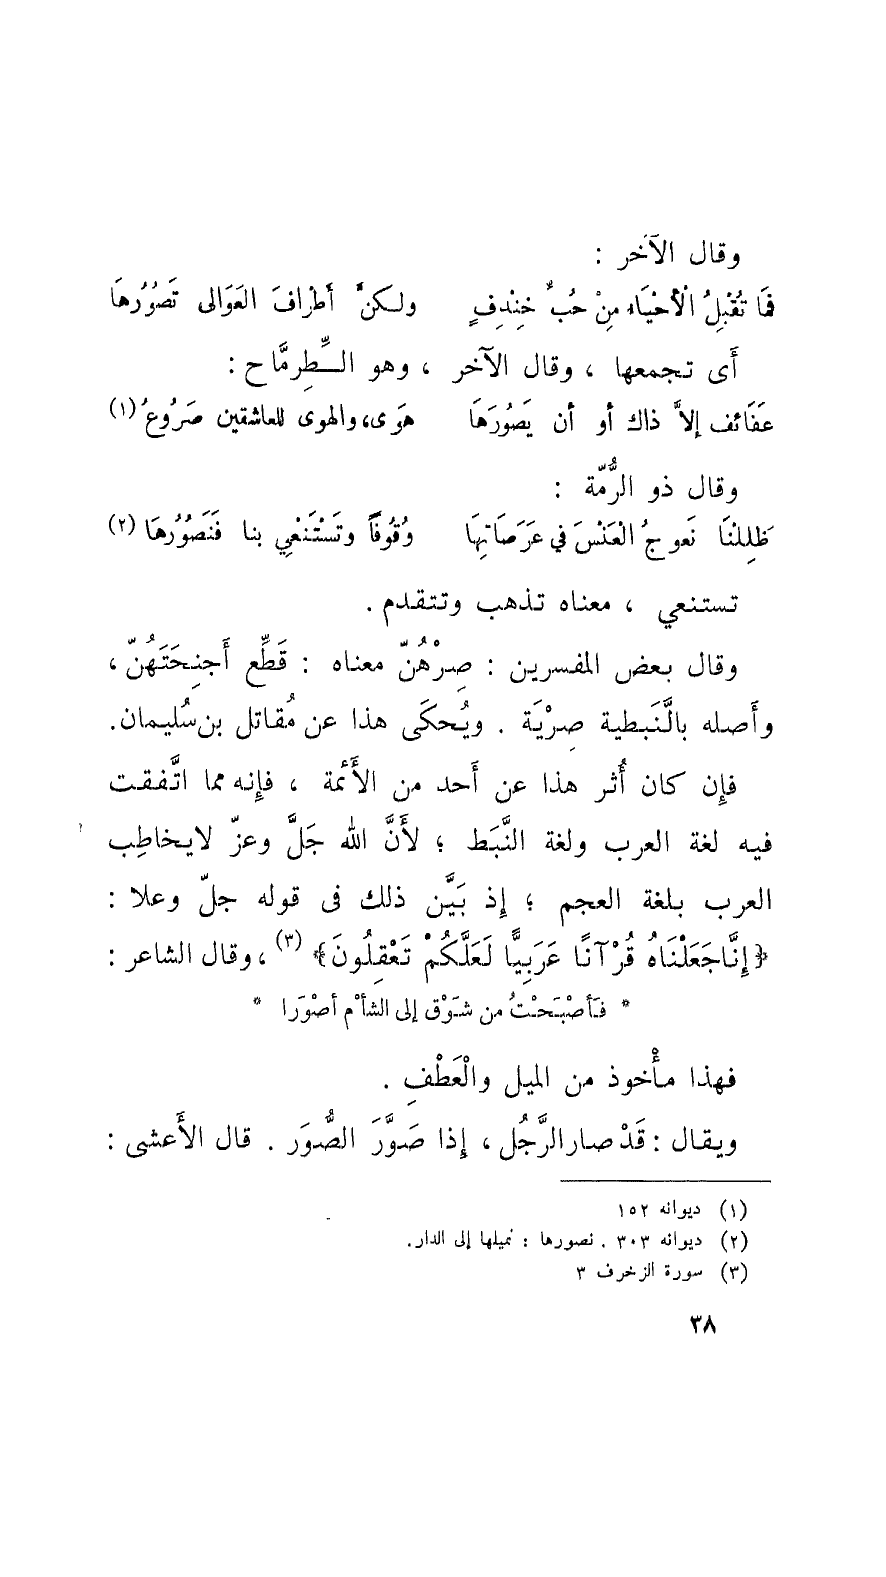 وقال الآخر :
فَمَا تُقْبِلُ الْأَحْيَاءُ مِنْ حُبِّ خِنْدِفٍ ولكنَّ أَطْرَافَ العَوَالى تَصُوُرُهَا
أَى تجمعها ، وقال الآخر ، وهو الطِّرِمَّاح :
عَفَائف إلاَّ ذاك أو أن يَصُورَهَا هَوًى، والهوى للعاشقين صَرُوعُ (١)
وقال ذو الرُّمّة :
ظَلِلْنَا نَعوجُ الْعَنْسَ فى عَرَصَاتِهَا وُقُوفًا وتَسْتَنْعِي بنا فَنَصُوُرهَا (٢)
تستنعي ، معناه تذهب وتتقدم .
وقال بعض المفسرين : صِرْهُنّ معناه : قَطِّع أَجنِحَتَهُنّ ،
وأَصله بالنَّبَطية صِرْيَة . ويُحكَى هذا عن مُقاتل بن سُليمان.
فإِن كان أُثر هذا عن أَحد من الأَئمة ، فإِنه مما اتَّفقت
فيه لغة العرب ولغة النَّبَط ؛ لأَنَّ الله جَلَّ وعزّ لايخاطِب
العرب بلغة العجم ؛ إِذ بَيَّن ذلك فى قوله جلّ وعلا :
﴿إِنَّا جَعَلْنَاهُ قُرْآنًا عَرَبِيًّا لَعَلَّكُمْ تَعْقِلُونَ﴾ (٣) ، وقال الشاعر :
* فَأَصْبَحْتُ من شَوْق إلى الشأْم أصْوَرا *
فهذا مأْخوذ من الميل والْعَطْفِ .
ويقال : قَدْ صار الرَّجُل ، إِذا صَوَّرَ الصُّوَر . قال الأَعشى :
(١) ديوانه ١٥٢
(٢) ديوانه ٣٠٣ . نصورها : نميلها إلى الدار.
(٣) سورة الزخرف ٣
٣٨